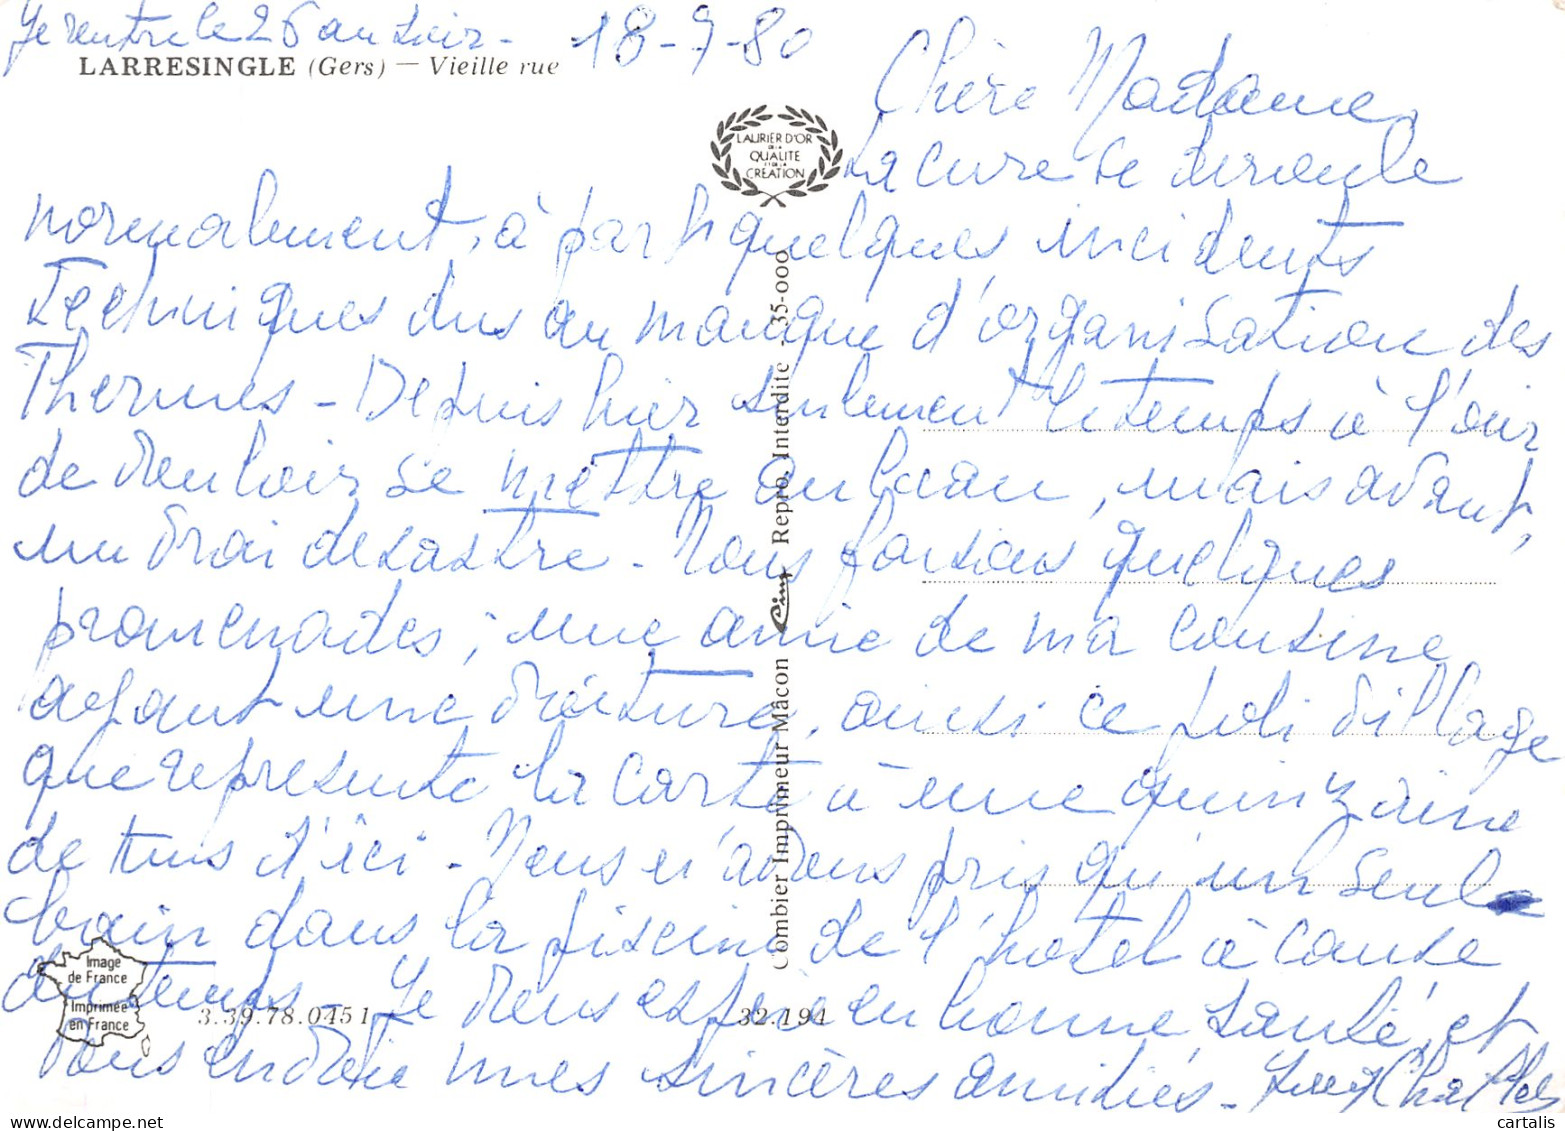 Je rentre le 26 au soir -
18-9-80
LARRESINGLE (Gers) — Vieille rue
Chère Madame,
LAURIER D'OR
DE LA
QUALITE
ET DE LA
CREATION
La cure se déroule
normalement, à part quelques incidents
Techniques dus au manque d'organisation des
Thermes - Depuis hier seulement le temps à l'air
de vouloir se mettre au beau, mais avant,
un vrai desastre - Nous faisons quelques
promenades, une amie de ma cousine
ayant une voiture, aussi ce joli village
que represente la carte à une quinzaine
de kms d'ici - Nous n'avons pris qu'un seul
bain dans la piscine de l'hotel à cause
du temps - Je vous espère en bonne santé, et
vous envoie mes sincères amitiés -
Combier Imprimeur Mâcon Cim Repro. Interdite - 35-000
Image
de France
Imprimée
en France
3.39.78.0451
32.194
cartalis